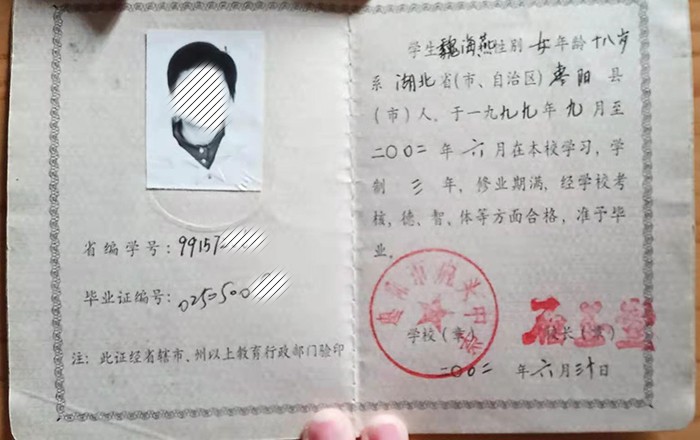 省编学号：99157
毕业证编号：0250500
注：此证经省辖市、州以上教育行政部门验印
学生魏海燕性别 女 年龄 十八岁
系 湖北 省(市、自治区) 枣阳 县
(市)人，于一九九九年九月至
二〇〇二年 六 月在本校学习，学
制 三 年，修业期满，经学校考
核，德、智、体等方面合格，准予毕
业。
学校(章) 校长(章)
二〇〇二 年六月三十日